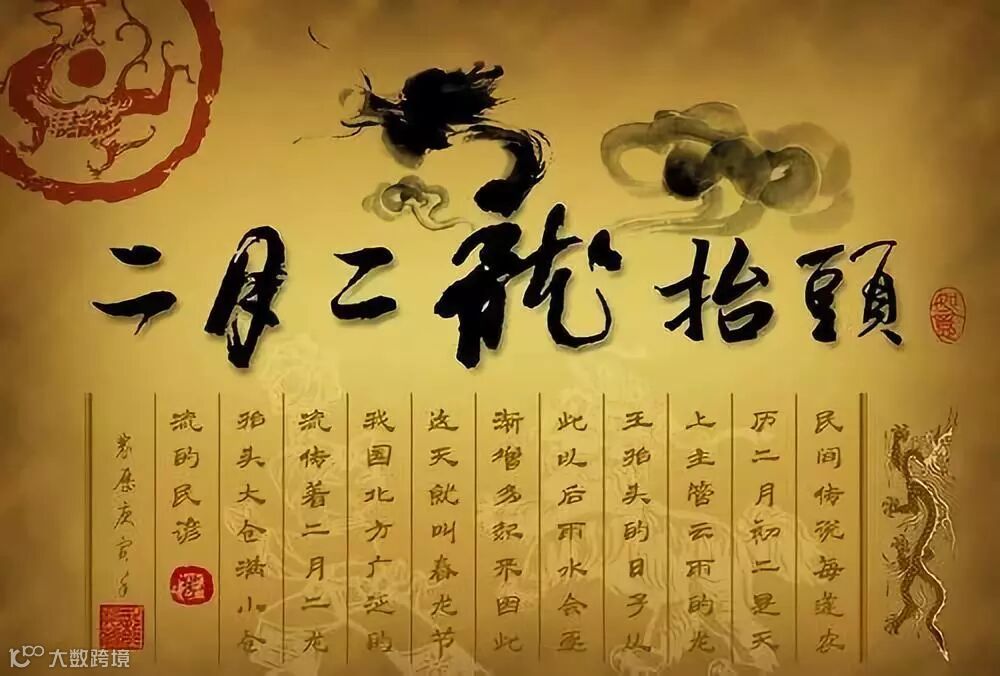 二月二龍抬頭
如意
民间传说每逢农
历二月初二是天
上主管云雨的龙
王抬头的日子从
此以后雨水会逐
渐增多起来因此
这天就叫春龙节
我国北方广泛的
流传着二月二龙
抬头大仓满小仓
流的民谚
农历庚寅年
大数跨境